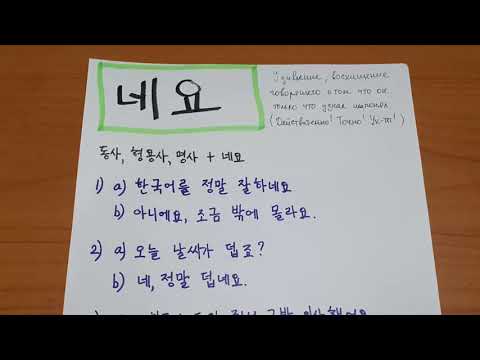 네요
Удивление, восхищение
говорящего о том что он
только что узнал
(Действительно! Точно! Ух-ты!)
동사, 형용사, 명사 + 네요
1) a) 한국어를 정말 잘하네요
b) 아니에요, 조금 밖에 몰라요.
2) a) 오늘 날씨가 덥죠?
b) 네, 정말 덥네요.